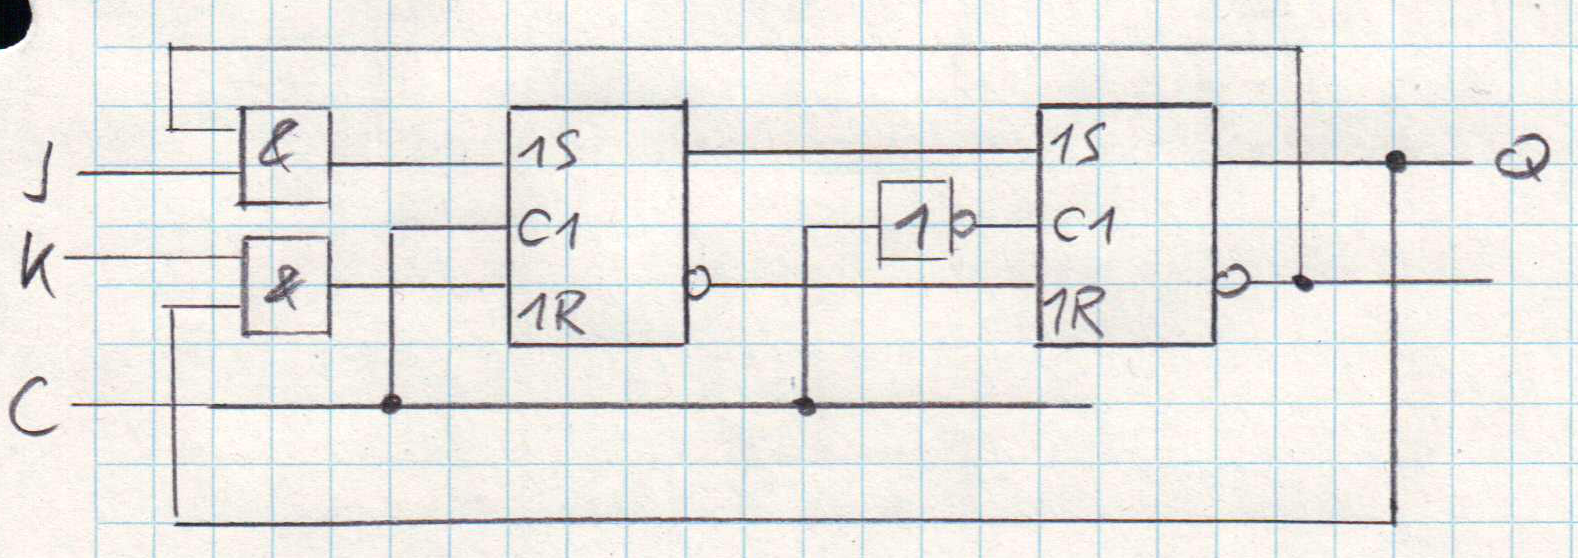 J
K
C
&
&
1S
C1
1R
1
1S
C1
1R
Q